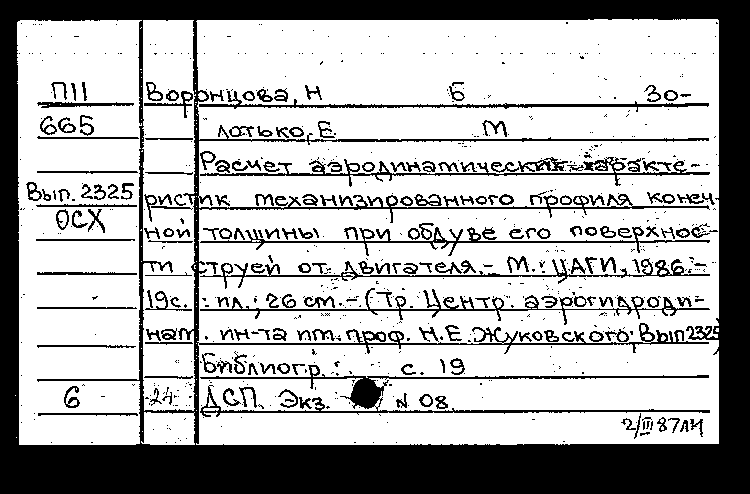 П11 Воронцова, Н Б , Зо-
665 лотько, Е М
Расчет аэродинамических характе-
Вып. 2325 ристик механизированного профиля конеч-
ОСХ ной толщины при обдуве его поверхнос-
ти струей от двигателя. - М.: ЦАГИ, 1986. -
19с. : ил.; 26 см. - (Тр. Центр. аэрогидроди-
нам. ин-та им. проф. Н.Е. Жуковского; Вып 2325)
Библиогр.: с. 19
6 24 ДСП. Экз. N 08
2/III 87